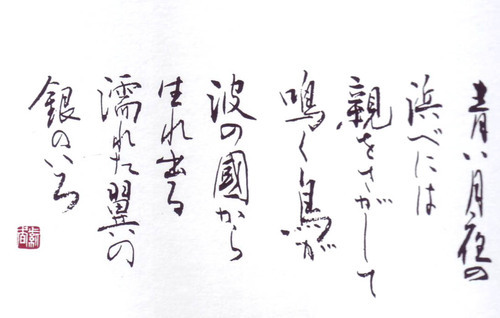 青い月夜の
浜べには
親をさがして
鳴く鳥が
波の國から
生れ出る
濡れた翼の
銀のいろ